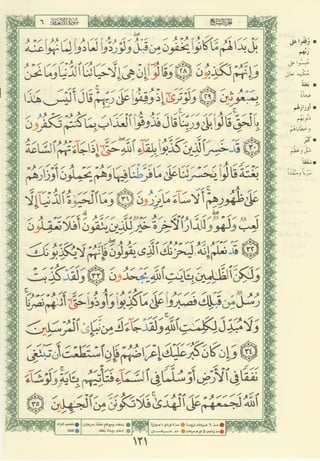 سورة الأنعام ٦
الجزء السابع
بَلْ بَدَا لَهُم مَّا كَانُوا۟ يُخْفُونَ مِن قَبْلُ ۖ وَلَوْ رُدُّوا۟ لَعَادُوا۟ لِمَا نُهُوا۟ عَنْهُ
وَإِنَّهُمْ لَكَـٰذِبُونَ ٢٨ وَقَالُوٓا۟ إِنْ هِىَ إِلَّا حَيَاتُنَا ٱلدُّنْيَا وَمَا نَحْنُ
بِمَبْعُوثِينَ ٢٩ وَلَوْ تَرَىٰٓ إِذْ وُقِفُوا۟ عَلَىٰ رَبِّهِمْ ۚ قَالَ أَلَيْسَ هَـٰذَا
بِٱلْحَقِّ ۚ قَالُوا۟ بَلَىٰ وَرَبِّنَا ۚ قَالَ فَذُوقُوا۟ ٱلْعَذَابَ بِمَا كُنتُمْ تَكْفُرُونَ
٣٠ قَدْ خَسِرَ ٱلَّذِينَ كَذَّبُوا۟ بِلِقَآءِ ٱللَّهِ ۖ حَتَّىٰٓ إِذَا جَآءَتْهُمُ ٱلسَّاعَةُ
بَغْتَةً قَالُوا۟ يَـٰحَسْرَتَنَا عَلَىٰ مَا فَرَّطْنَا فِيهَا وَهُمْ يَحْمِلُونَ أَوْزَارَهُمْ
عَلَىٰ ظُهُورِهِمْ ۚ أَلَا سَآءَ مَا يَزِرُونَ ٣١ وَمَا ٱلْحَيَوٰةُ ٱلدُّنْيَآ إِلَّا
لَعِبٌ وَلَهْوٌ ۖ وَلَلدَّارُ ٱلْـَٔاخِرَةُ خَيْرٌ لِّلَّذِينَ يَتَّقُونَ ۗ أَفَلَا تَعْقِلُونَ
٣٢ قَدْ نَعْلَمُ إِنَّهُۥ لَيَحْزُنُكَ ٱلَّذِى يَقُولُونَ ۖ فَإِنَّهُمْ لَا يُكَذِّبُونَكَ
وَلَـٰكِنَّ ٱلظَّـٰلِمِينَ بِـَٔايَـٰتِ ٱللَّهِ يَجْحَدُونَ ٣٣ وَلَقَدْ كُذِّبَتْ
رُسُلٌ مِّن قَبْلِكَ فَصَبَرُوا۟ عَلَىٰ مَا كُذِّبُوا۟ وَأُوذُوا۟ حَتَّىٰٓ أَتَىٰهُمْ نَصْرُنَا ۚ
وَلَا مُبَدِّلَ لِكَلِمَـٰتِ ٱللَّهِ ۚ وَلَقَدْ جَآءَكَ مِن نَّبَإِى۟ ٱلْمُرْسَلِينَ
٣٤ وَإِن كَانَ كَبُرَ عَلَيْكَ إِعْرَاضُهُمْ فَإِنِ ٱسْتَطَعْتَ أَن تَبْتَغِىَ
نَفَقًا فِى ٱلْأَرْضِ أَوْ سُلَّمًا فِى ٱلسَّمَآءِ فَتَأْتِيَهُم بِـَٔايَةٍ ۚ وَلَوْ شَآءَ
ٱللَّهُ لَجَمَعَهُمْ عَلَى ٱلْهُدَىٰ ۚ فَلَا تَكُونَنَّ مِنَ ٱلْجَـٰهِلِينَ ٣٥
وُقِفُوا على
ربّهم
حُبسوا على
حُكمه تعالى
بغتة
فجأة
أوزارهم
ذُنوبهم
وخطاياهم
كَبُر
شقّ وعظُم
نفقاً
١٣١